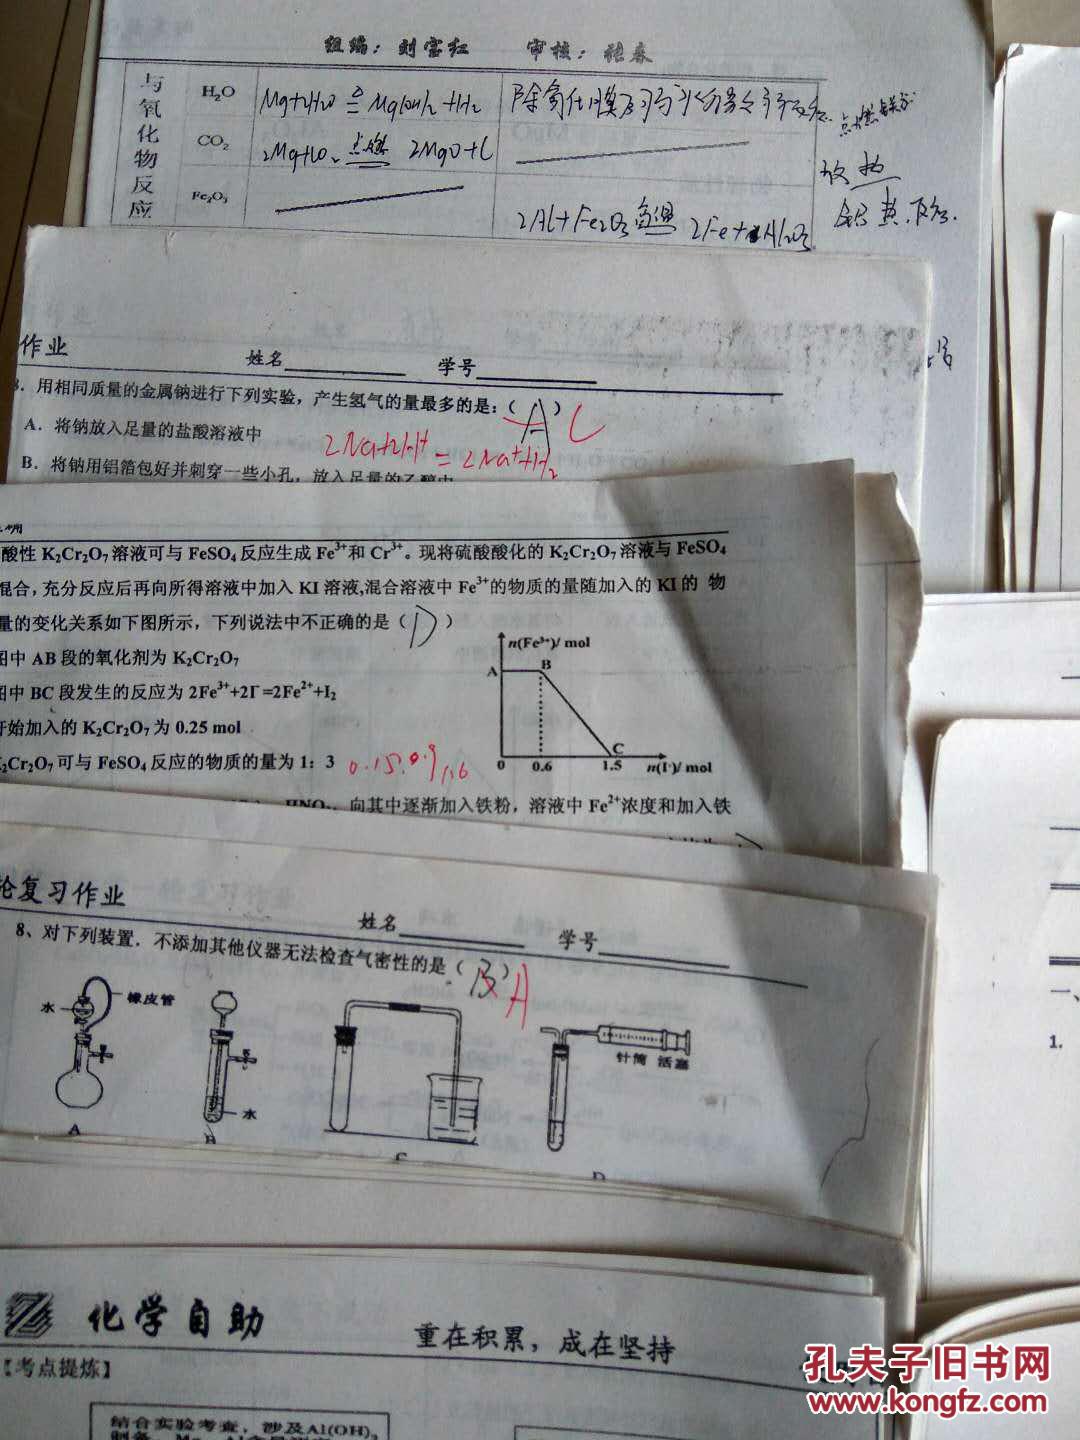 组编：刘富红 审核：张春
与氧化物反应
H₂O Mg+2H₂O ≜ Mg(OH)₂+H₂
点燃镁条
CO₂ 2Mg+CO₂ 点燃 2MgO+C
放热
Fe₂O₃ 2Al+Fe₂O₃ 高温 2Fe+Al₂O₃
铝热反应.
作业 姓名 学号
3．用相同质量的金属钠进行下列实验，产生氢气的量最多的是：（ A ） C
A．将钠放入足量的盐酸溶液中 2Na+2H⁺=2Na⁺+H₂
B．将钠用铝箔包好并刺穿一些小孔，放入足量的乙醇中
酸性 K₂Cr₂O₇ 溶液可与 FeSO₄ 反应生成 Fe³⁺和 Cr³⁺。现将硫酸酸化的 K₂Cr₂O₇ 溶液与 FeSO₄
混合，充分反应后再向所得溶液中加入 KI 溶液,混合溶液中 Fe³⁺的物质的量随加入的 KI 的 物
量的变化关系如下图所示，下列说法中不正确的是（ D ）
图中 AB 段的氧化剂为 K₂Cr₂O₇
图中 BC 段发生的反应为 2Fe³⁺+2I⁻=2Fe²⁺+I₂
开始加入的 K₂Cr₂O₇ 为 0.25 mol
K₂Cr₂O₇ 可与 FeSO₄ 反应的物质的量为 1：3 0.15 0.9
n(Fe³⁺)/ mol
A B
C
0 0.6 1.5 n(I⁻)/ mol
HNO₃，向其中逐渐加入铁粉，溶液中 Fe²⁺浓度和加入铁
轮复习作业 姓名 学号
8、对下列装置．不添加其他仪器无法检查气密性的是（ B ） A
水 橡皮管
水
针筒 活塞
A B C D
一、
1.
化学自助 重在积累，成在坚持
【考点提炼】
结合实验考查，涉及Al(OH)₃
孔夫子旧书网
www.kongfz.com